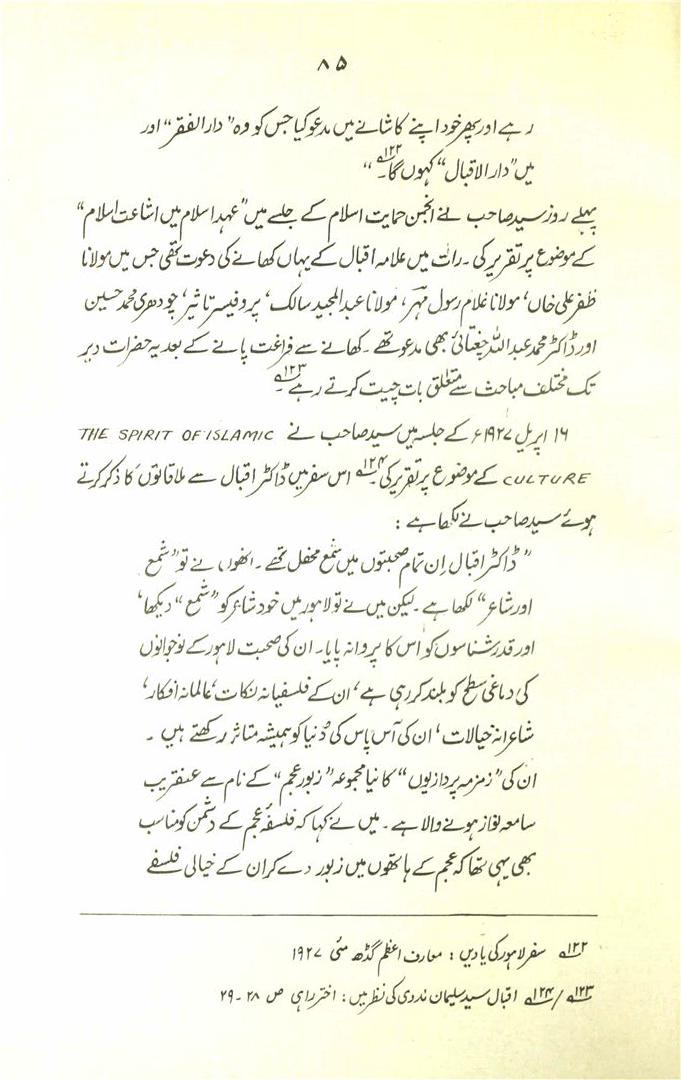 ۸۵
رہے اور پھر خود اپنے کاشانے میں مدعو کیا جس کو وہ ”دار الفقر“ اور
میں ”دار الاقبال“ کہوں گا۔ ۱۲۲؎ “
پہلے روز سید صاحب نے انجمن حمایت اسلام کے جلسے میں ”عہد اسلام میں اشاعت اسلام“
کے موضوع پر تقریر کی۔ رات میں علامہ اقبال کے یہاں کھانے کی دعوت تھی جس میں مولانا
ظفر علی خاں، مولانا غلام رسول مہر، مولانا عبد المجید سالک، پروفیسر تاثیر، چودھری محمد حسین
اور ڈاکٹر محمد عبد اللہ چغتائی بھی مدعو تھے۔ کھانے سے فراغت پانے کے بعد یہ حضرات دیر
تک مختلف مباحث سے متعلق بات چیت کرتے رہے ۱۲۳؎۔
۱۶ اپریل ۱۹۲۷ء کے جلسہ میں سید صاحب نے THE SPIRIT OF ISLAMIC
CULTURE کے موضوع پر تقریر کی ۱۲۴؎۔ اس سفر میں ڈاکٹر اقبال سے ملاقاتوں کا ذکر کرتے
ہوئے سید صاحب نے لکھا ہے :
”ڈاکٹر اقبال ان تمام صحبتوں میں شمع محفل تھے۔ انھوں نے تو ”شمع
اور شاعر“ لکھا ہے۔ لیکن میں نے تو لاہور میں خود شاعر کو ”شمع“ دیکھا،
اور قدر شناسوں کو اس کا پروانہ پایا۔ ان کی صحبت لاہور کے نوجوانوں
کی دماغی سطح کو بلند کر رہی ہے، ان کے فلسفیانہ نکات، عالمانہ افکار،
شاعرانہ خیالات، ان کی آس پاس کی دُنیا کو ہمیشہ متاثر رکھتے ہیں ۔
ان کی ”زمزمہ پردازیوں“ کا نیا مجموعہ ”زبور عجم“ کے نام سے عنقریب
سامعہ نواز ہونے والا ہے۔ میں نے کہا کہ فلسفۂ عجم کے دشمن کو مناسب
بھی یہی تھا کہ عجم کے ہاتھوں میں زبور دے کر ان کے خیالی فلسفے
۱۲۲؎ سفر لاہور کی یادیں : معارف اعظم گڈھ مئی ۱۹۲۷
۱۲۳؎/۱۲۴؎ اقبال سید سلیمان ندوی کی نظر میں : اختر راہی ص ۲۸ ۔ ۲۹